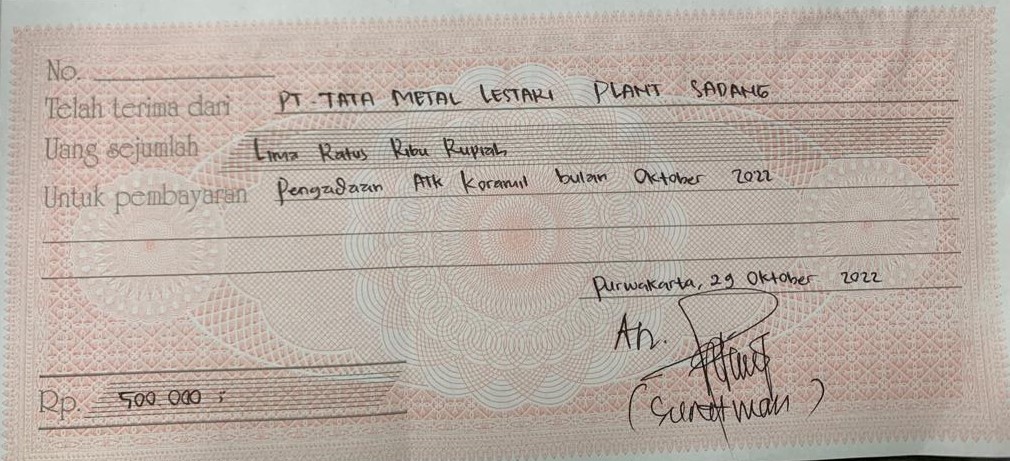 No.
Telah terima dari PT. TATA METAL LESTARI PLANT SADANG
Uang sejumlah Lima Ratus Ribu Rupiah
Untuk pembayaran Pengadaan ATK Koramil bulan Oktober 2022
Purwakarta, 29 Oktober 2022
An.
Rp. 500.000